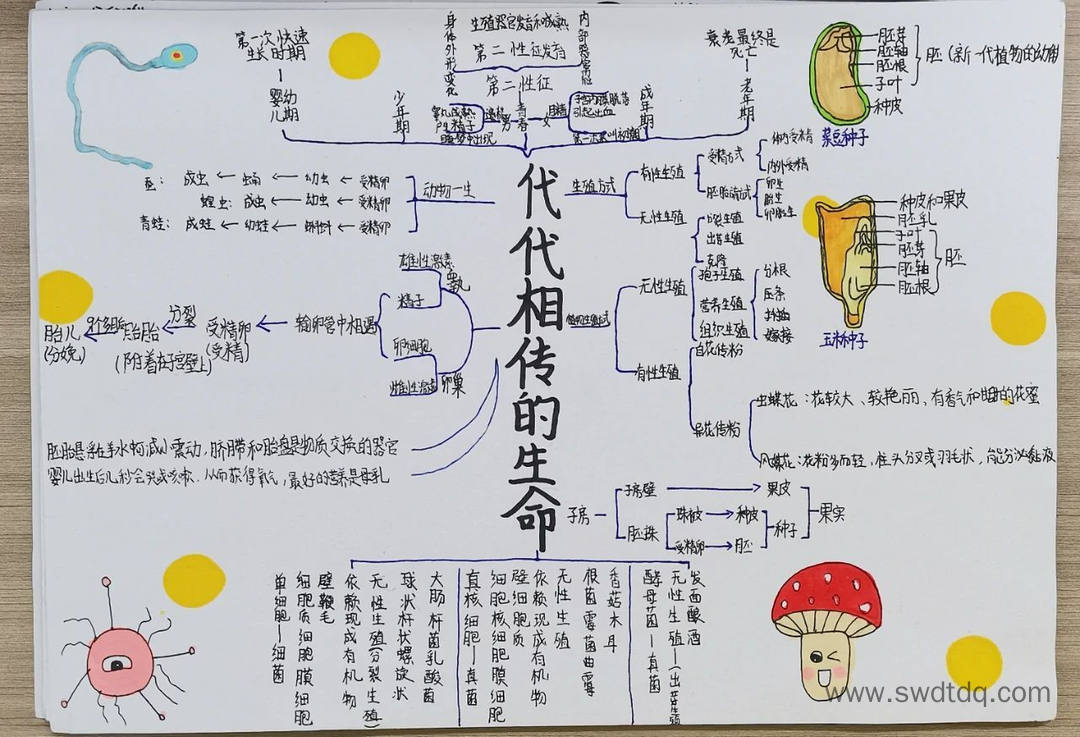 代代相传的生命
第一次快速
生长时期
婴幼
儿期
少年期
身体外形变化
生殖器官发育和成熟
内部器官功能
第二性征发育
第二性征
青春
男
女
遗精
月经
睾丸成熟
产生精子
子宫内膜脱落
引起出血
成年期
衰老最终是
死亡
老年期
动物一生
蚕: 成虫 ← 蛹 ← 幼虫 ← 受精卵
蝗虫: 成虫 ← 幼虫 ← 受精卵
青蛙: 成蛙 ← 幼蛙 ← 蝌蚪 ← 受精卵
生殖方式
有性生殖
受精方式
体内受精
体外受精
卵生
胎生
卵胎生
无性生殖
雄性激素
睾丸
精子
卵细胞
雌性激素
卵巢
输卵管中相遇
受精卵
(受精)
分裂
胚胎
(附着在子宫壁上)
胎儿
(分娩)
无性生殖
分裂生殖
出芽生殖
克隆
孢子生殖
营养生殖
组织生殖
分根
压条
扦插
嫁接
有性生殖
自花传粉
异花传粉
虫媒花:花较大、较艳丽、有香气和甜甜的花蜜
风媒花:花粉多而轻,柱头分叉或羽毛状,能分泌黏液
脐带和胎盘是物质交换的器官
从而获得氧气,最好的营养是母乳
子房
子房壁 → 果皮
胚珠
珠被 → 种皮
受精卵 → 胚
种子
果实
胚芽
胚轴
胚根
子叶
种皮
菜豆种子
种皮和果皮
胚乳
子叶
胚芽
胚轴
胚根
胚
玉米种子
单细胞—细菌
细胞质细胞膜细胞
壁鞭毛
依赖现成有机物
无性生殖(分裂生殖)
球状杆状螺旋状
大肠杆菌乳酸菌
真核细胞—真菌
细胞核细胞膜细胞
壁细胞质
依赖现成有机物
无性生殖
根菌霉菌曲霉
香菇木耳
酵母菌—真菌
无性生殖—(出芽生殖
发面酿酒
www.swdtdq.com